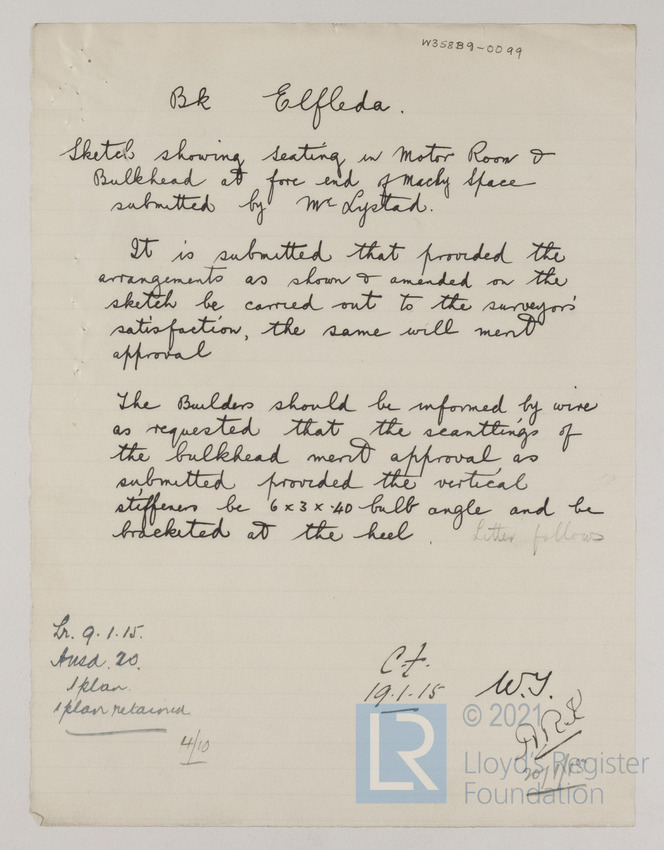 W358B9-0099
Bk Elfleda.
Sketch showing seating in Motor Room &
Bulkhead at fore end of Machy Space
submitted by Mr Lystad.
It is submitted that provided the
arrangements as shown & amended on the
sketch be carried out to the surveyors'
satisfaction, the same will merit
approval
The Builders should be informed by wire
as requested that the scantlings of
the bulkhead merit approval as
submitted provided the vertical
stiffeners be 6 x 3 x .40 bulb angle and be
bracketed at the heel. Letter follows
Lr. 9.1.15.
Ansd. 20.
1 plan.
1 plan retained
4/10
C.F.
19.1.15
W.T.
20/1/15
© 2021
LR
Lloyd's Register
Foundation